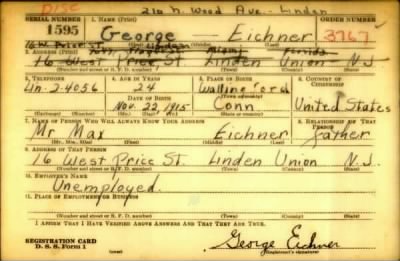 DISC 210 N. Wood Ave - Linden
SERIAL NUMBER 1. NAME (Print) ORDER NUMBER
1595 George Eichner 3767
(First) (Middle) (Last)
16 W. Price St. Linden
2. ADDRESS (Print) Miami Florida
16 West Price St. Linden Union N.J.
(Number and street or R. F. D. number) (Town) (County) (State)
3. TELEPHONE 4. AGE IN YEARS 5. PLACE OF BIRTH 6. COUNTRY OF CITIZENSHIP
Lin-2-4056 24 Wallingford
DATE OF BIRTH
Nov. 22, 1915 Conn United States
(Exchange) (No.) (Mo.) (Day) (Yr.) (State or country)
7. NAME OF PERSON WHO WILL ALWAYS KNOW YOUR ADDRESS 8. RELATIONSHIP OF THAT PERSON
Mr Max Eichner father
(Mr., Mrs., Miss) (First) (Middle) (Last)
9. ADDRESS OF THAT PERSON
16 West Price St. Linden Union N.J.
(Number and street or R. F. D. number) (Town) (County) (State)
10. EMPLOYER'S NAME
Unemployed.
11. PLACE OF EMPLOYMENT OR BUSINESS
(Number and street or R. F. D. number) (Town) (County) (State)
I AFFIRM THAT I HAVE VERIFIED ABOVE ANSWERS AND THAT THEY ARE TRUE.
REGISTRATION CARD
D. S. S. Form 1 George Eichner
(Registrant's signature)